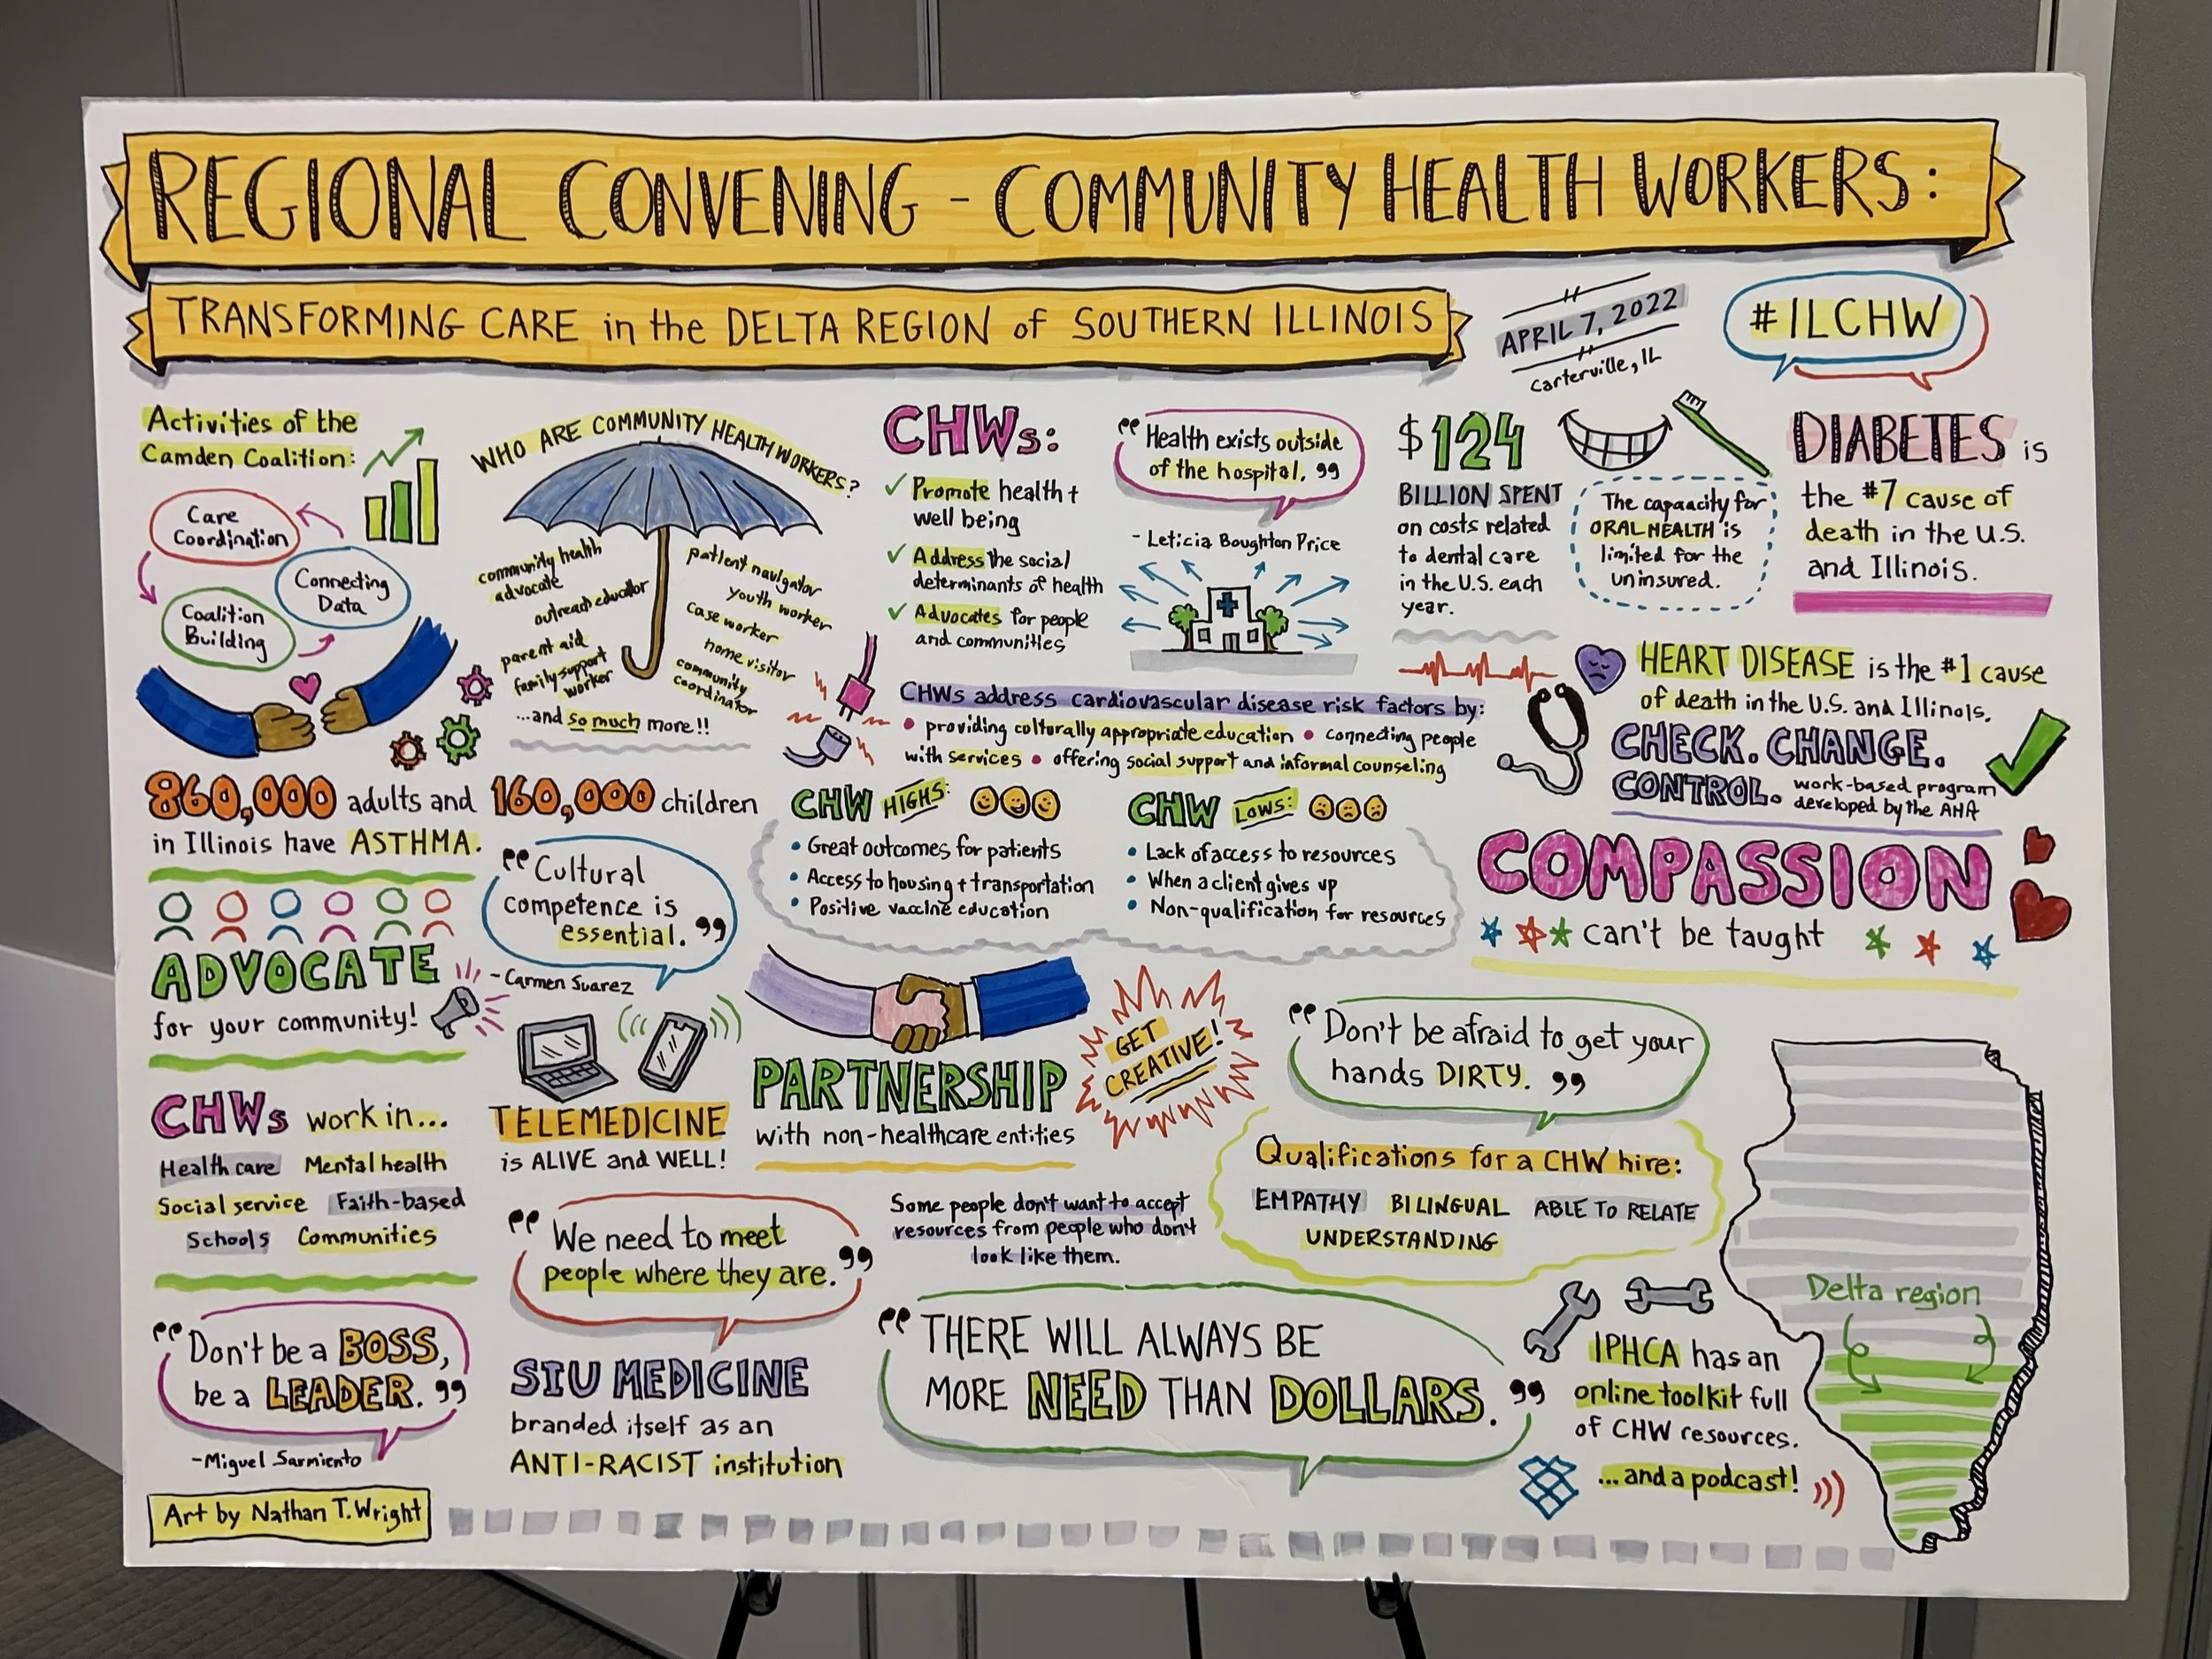 REGIONAL CONVENING - COMMUNITY HEALTH WORKERS:
TRANSFORMING CARE in the DELTA REGION of SOUTHERN ILLINOIS
APRIL 7, 2022
Carterville, IL
#ILCHW
Activities of the
Camden Coalition:
Care
Coordination
Connecting
Data
Coalition
Building
WHO ARE COMMUNITY HEALTH WORKERS?
community health
advocate
outreach educator
parent aid
family support
worker
patient navigator
youth worker
case worker
home visitor
community
coordinator
...and so much more!!
CHWs:
✓ Promote health +
well being
✓ Address the social
determinants of health
✓ Advocates for people
and communities
"Health exists outside
of the hospital."
- Leticia Boughton Price
$124
BILLION SPENT
on costs related
to dental care
in the U.S. each
year.
The capaacity for
ORAL HEALTH is
limited for the
uninsured.
DIABETES is
the #7 cause of
death in the U.S.
and Illinois.
CHWs address cardiovascular disease risk factors by:
• providing culturally appropriate education • connecting people
with services • offering social support and informal counseling
HEART DISEASE is the #1 cause
of death in the U.S. and Illinois.
CHECK. CHANGE.
CONTROL. work-based program
developed by the AHA
860,000 adults and 160,000 children
in Illinois have ASTHMA.
"Cultural
competence is
essential."
- Carmen Suarez
CHW HIGHS:
• Great outcomes for patients
• Access to housing + transportation
• Positive vaccine education
CHW LOWS:
• Lack of access to resources
• When a client gives up
• Non-qualification for resources
COMPASSION
can't be taught
ADVOCATE
for your community!
TELEMEDICINE
is ALIVE and WELL!
PARTNERSHIP
with non-healthcare entities
GET
CREATIVE!
"Don't be afraid to get your
hands DIRTY."
CHWs work in...
Health care Mental health
Social service Faith-based
Schools Communities
"We need to meet
people where they are."
Some people don't want to accept
resources from people who don't
look like them.
Qualifications for a CHW hire:
EMPATHY BILINGUAL ABLE TO RELATE
UNDERSTANDING
Delta region
"Don't be a BOSS,
be a LEADER."
-Miguel Sarmiento
SIU MEDICINE
branded itself as an
ANTI-RACIST institution
"THERE WILL ALWAYS BE
MORE NEED THAN DOLLARS."
IPHCA has an
online toolkit full
of CHW resources.
...and a podcast!
Art by Nathan T. Wright